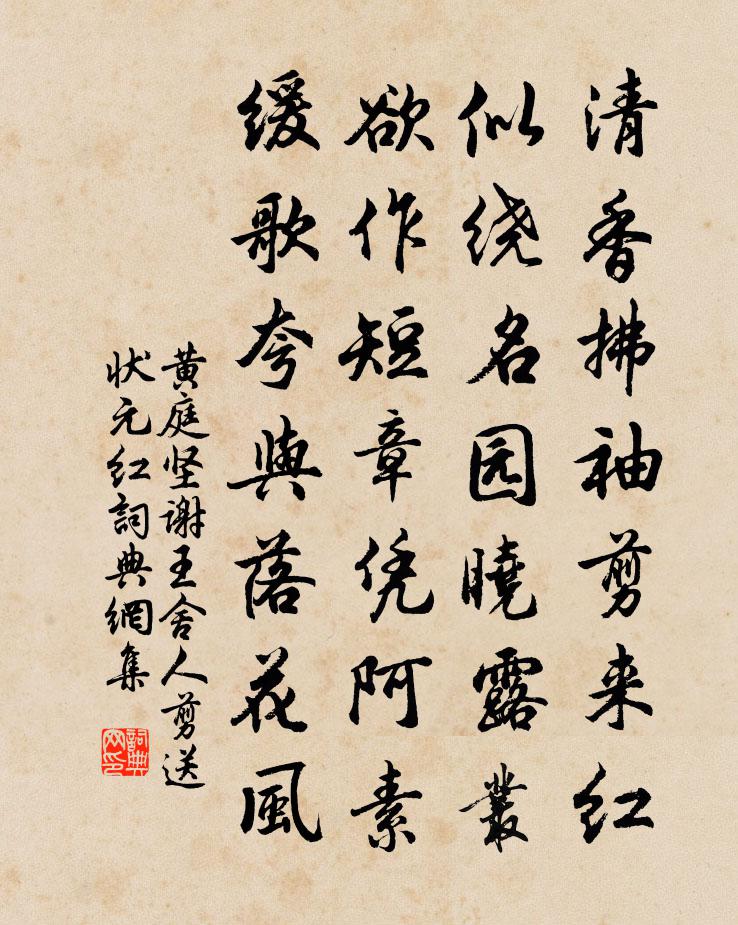 清香拂袖剪来红
似绕名园曉露叢
欲作短章凭阿素
缓歌夸與落花風
黄庭坚谢王舍人剪送
状元红詞典網集
詞典
网印